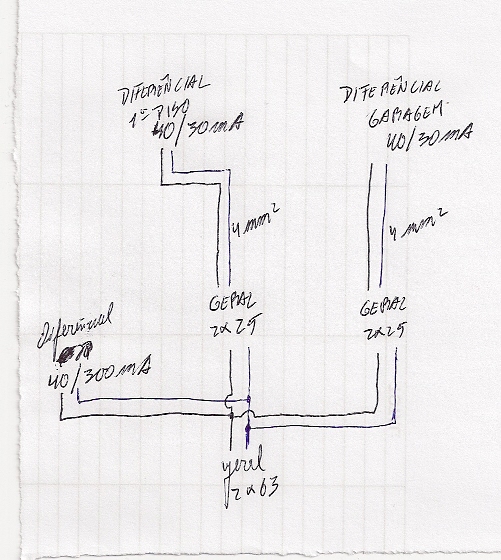 DIFERÊNCIAL
1º PISO
40/30mA
DIFERÊNCIAL
GARAGEM
40/30mA
4 mm²
4 mm²
GERAL
2x25
GERAL
2x25
Diferêncial
40/300mA
geral
2x63